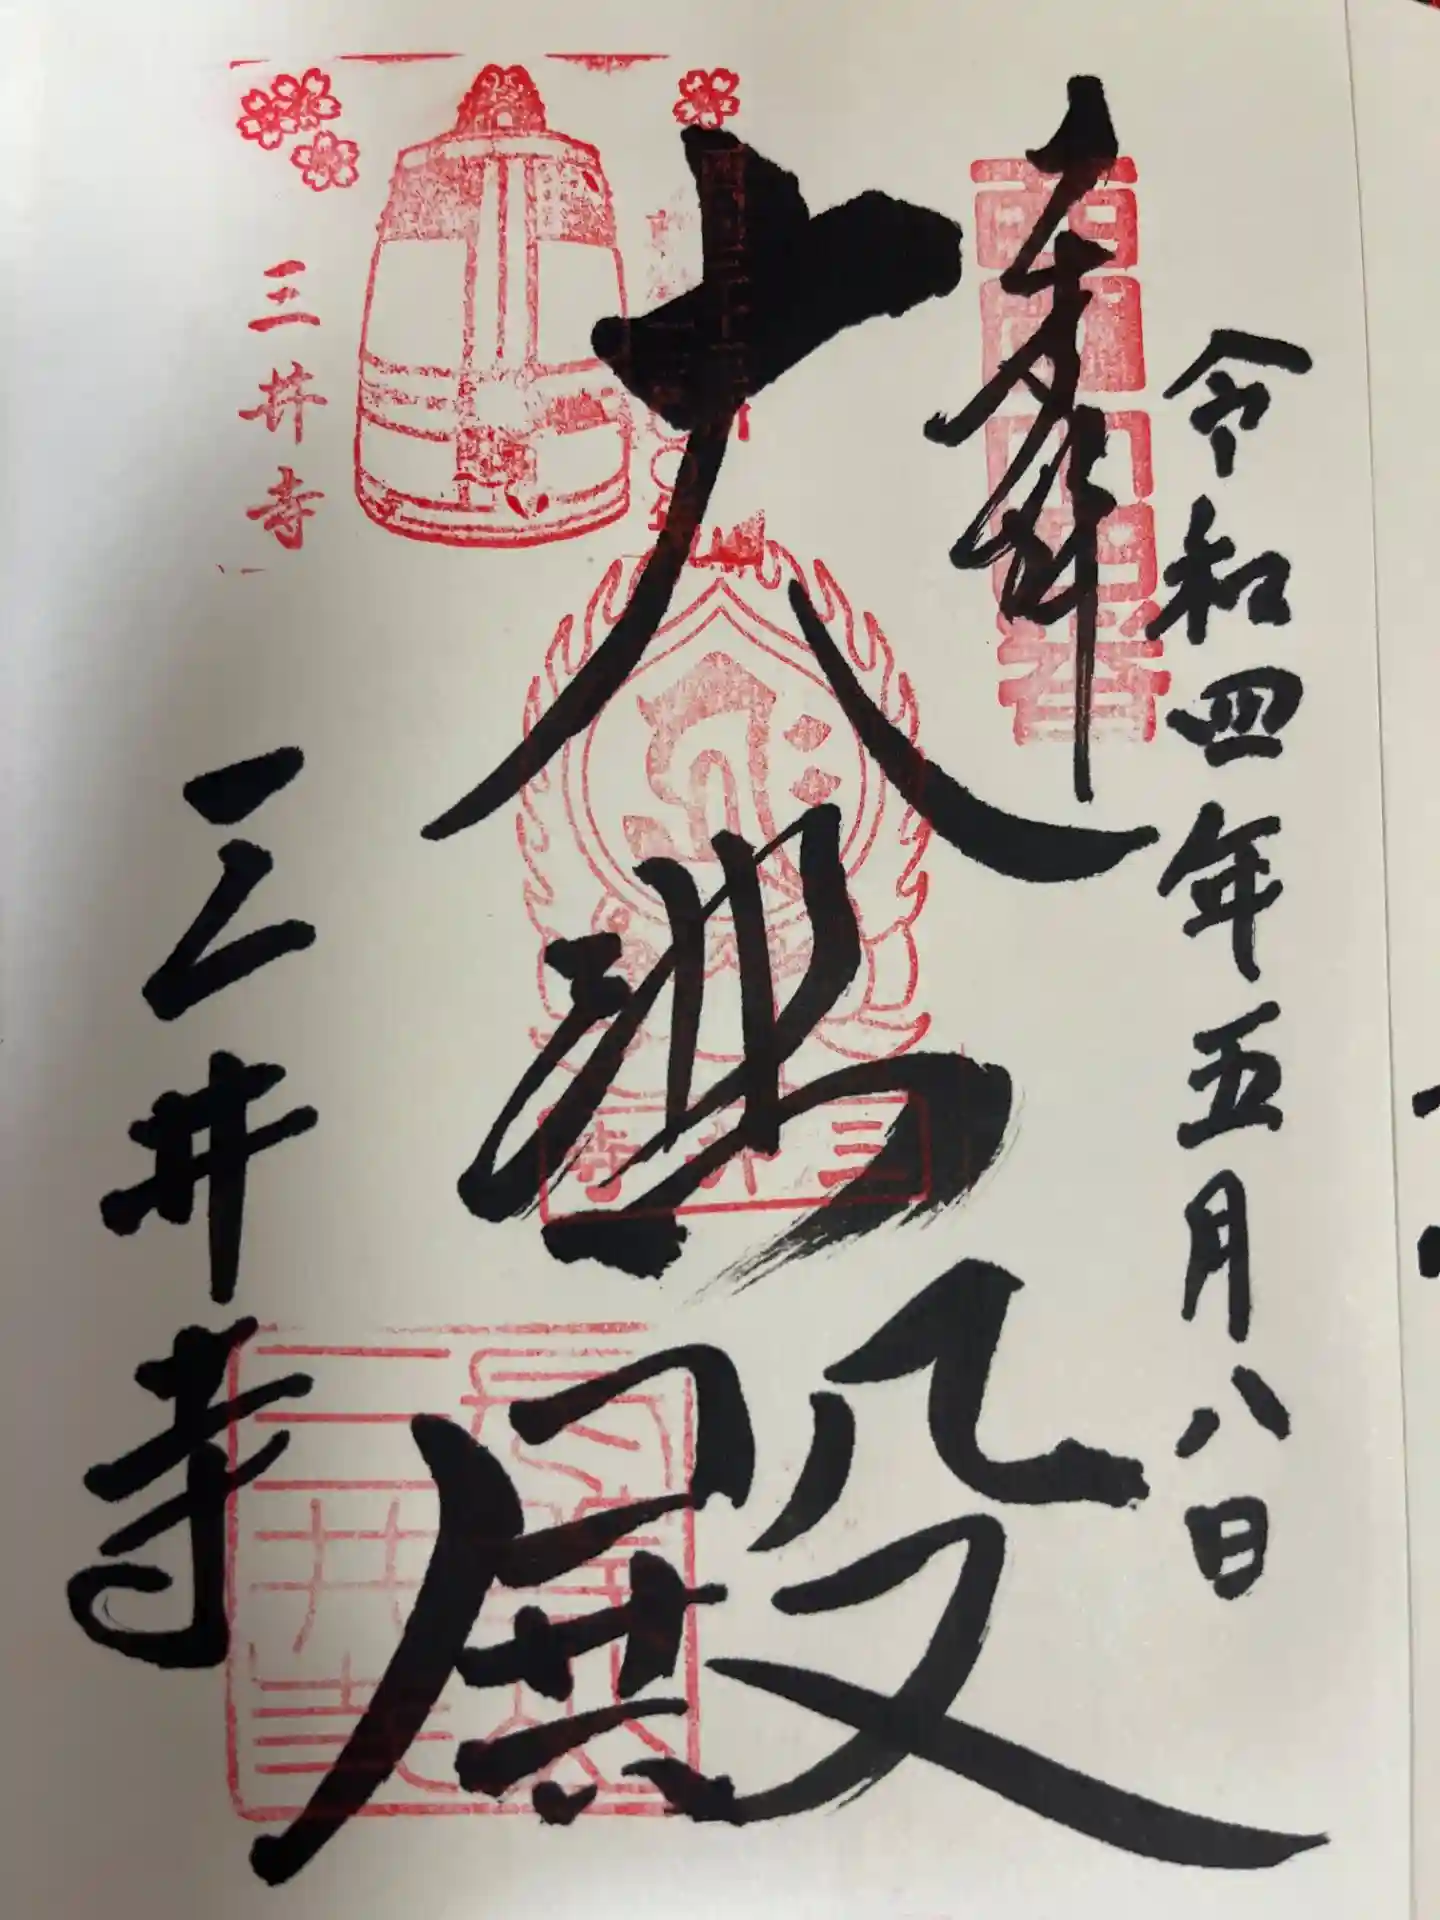 令和四年五月八日
奉拝
西国十四番
大悲殿
三井寺
三井寺
三井寺
三井寺